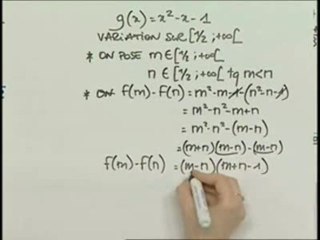 g(x)=x²-x-1
VARIATION SUR [1/2;+∞[
* ON POSE m∈[1/2;+∞[
n∈[1/2;+∞[ tq m<n
* ON f(m)-f(n)=m²-m-1-(n²-n-1)
=m²-n²-m+n
=m²-n²-(m-n)
=(m+n)(m-n)-(m-n)
f(m)-f(n) =(m-n)(m+n-1)